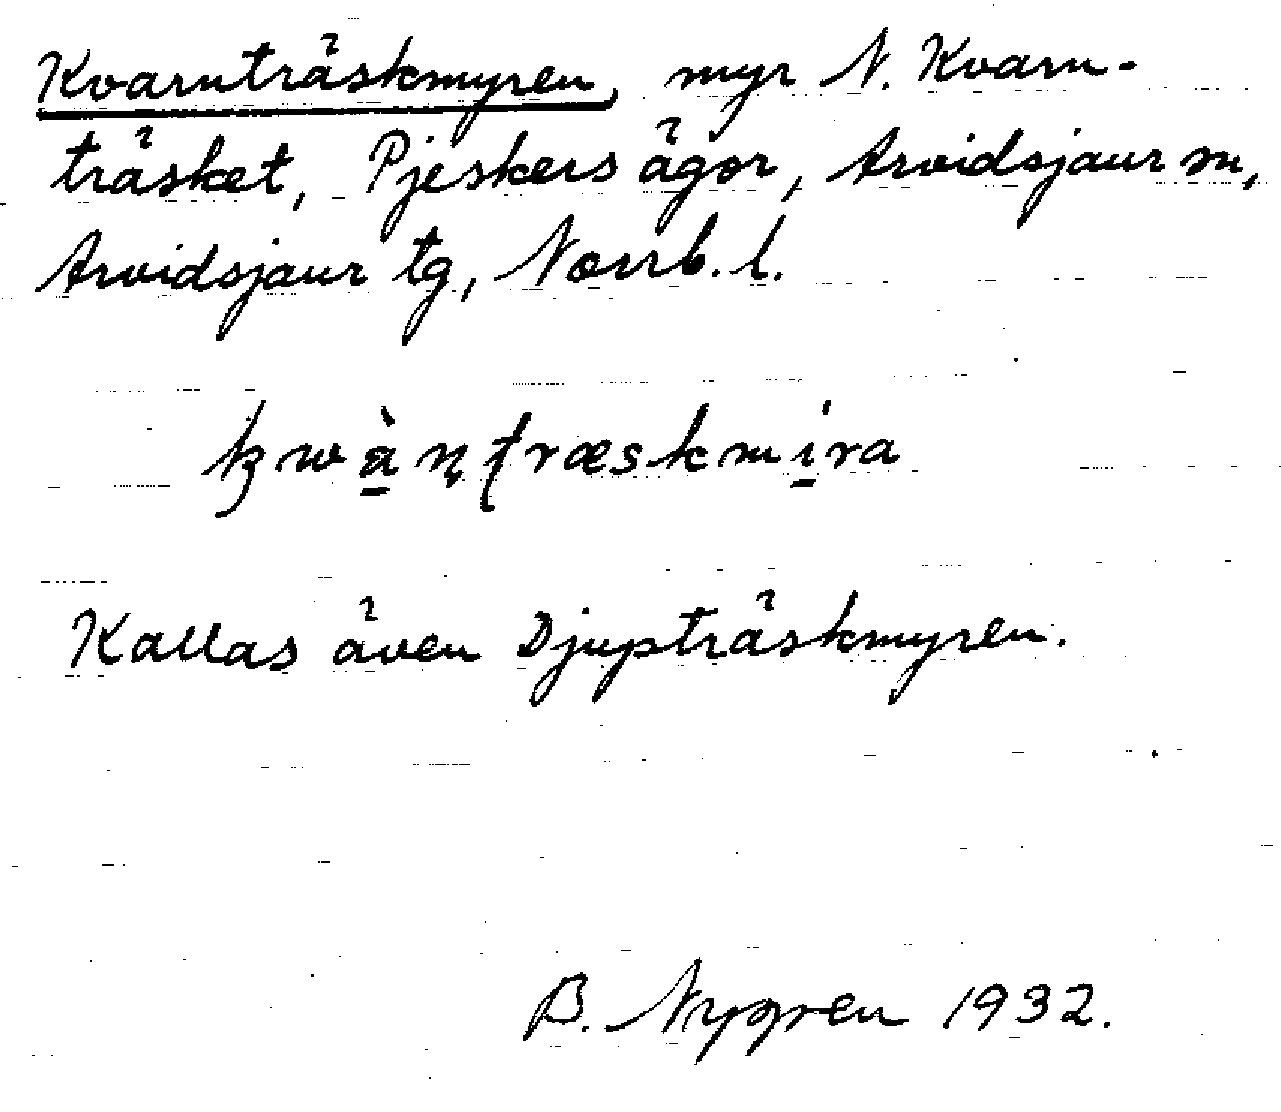 Kvarnträskmyren, myr N. Kvarn-
träsket, Pjeskers ägor, Arvidsjaur sn,
Arvidsjaur tg, Norrb. l.
Kallas även Djupträskmyren.
B. Nygren 1932.